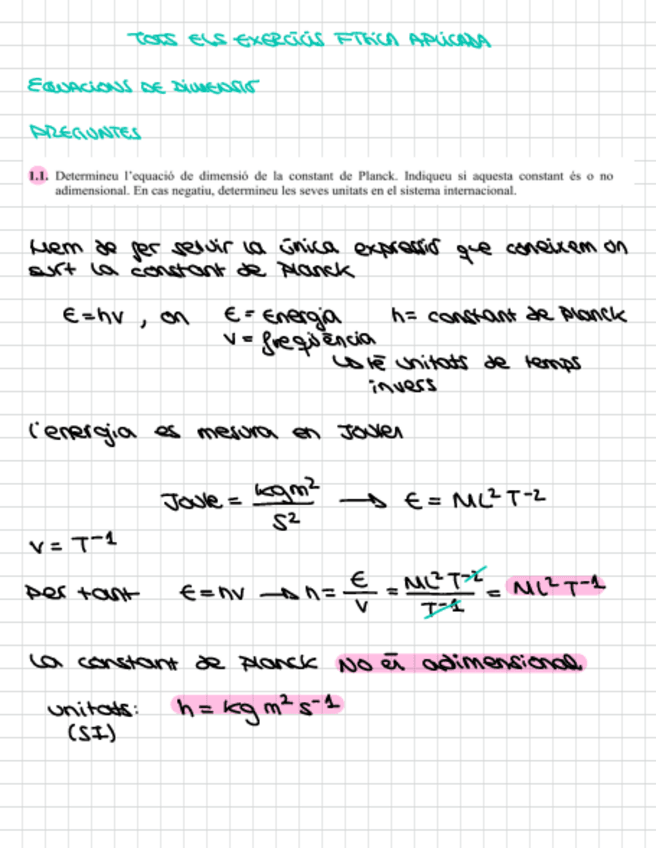 TOTS ELS EXERCICIS FÍSICA APLICADA
EQUACIONS DE DIMENSIÓ
PREGUNTES
1.1. Determineu l'equació de dimensió de la constant de Planck. Indiqueu si aquesta constant és o no
adimensional. En cas negatiu, determineu les seves unitats en el sistema internacional.
Hem de fer servir la única expressió que coneixem on
surt la constant de Planck
E=hν , on E = Energia h= constant de Planck
ν = freqüència
↳ té unitats de temps
invers
l'energia es mesura en Joules
Joule = kgm²/s² → E = ML²T⁻²
ν = T⁻¹
Per tant E=hν → h = E/ν = ML²T⁻²/T⁻¹ = ML²T⁻¹
La constant de Planck NO és adimensional.
unitats: h = kg m² s⁻¹
(SI)